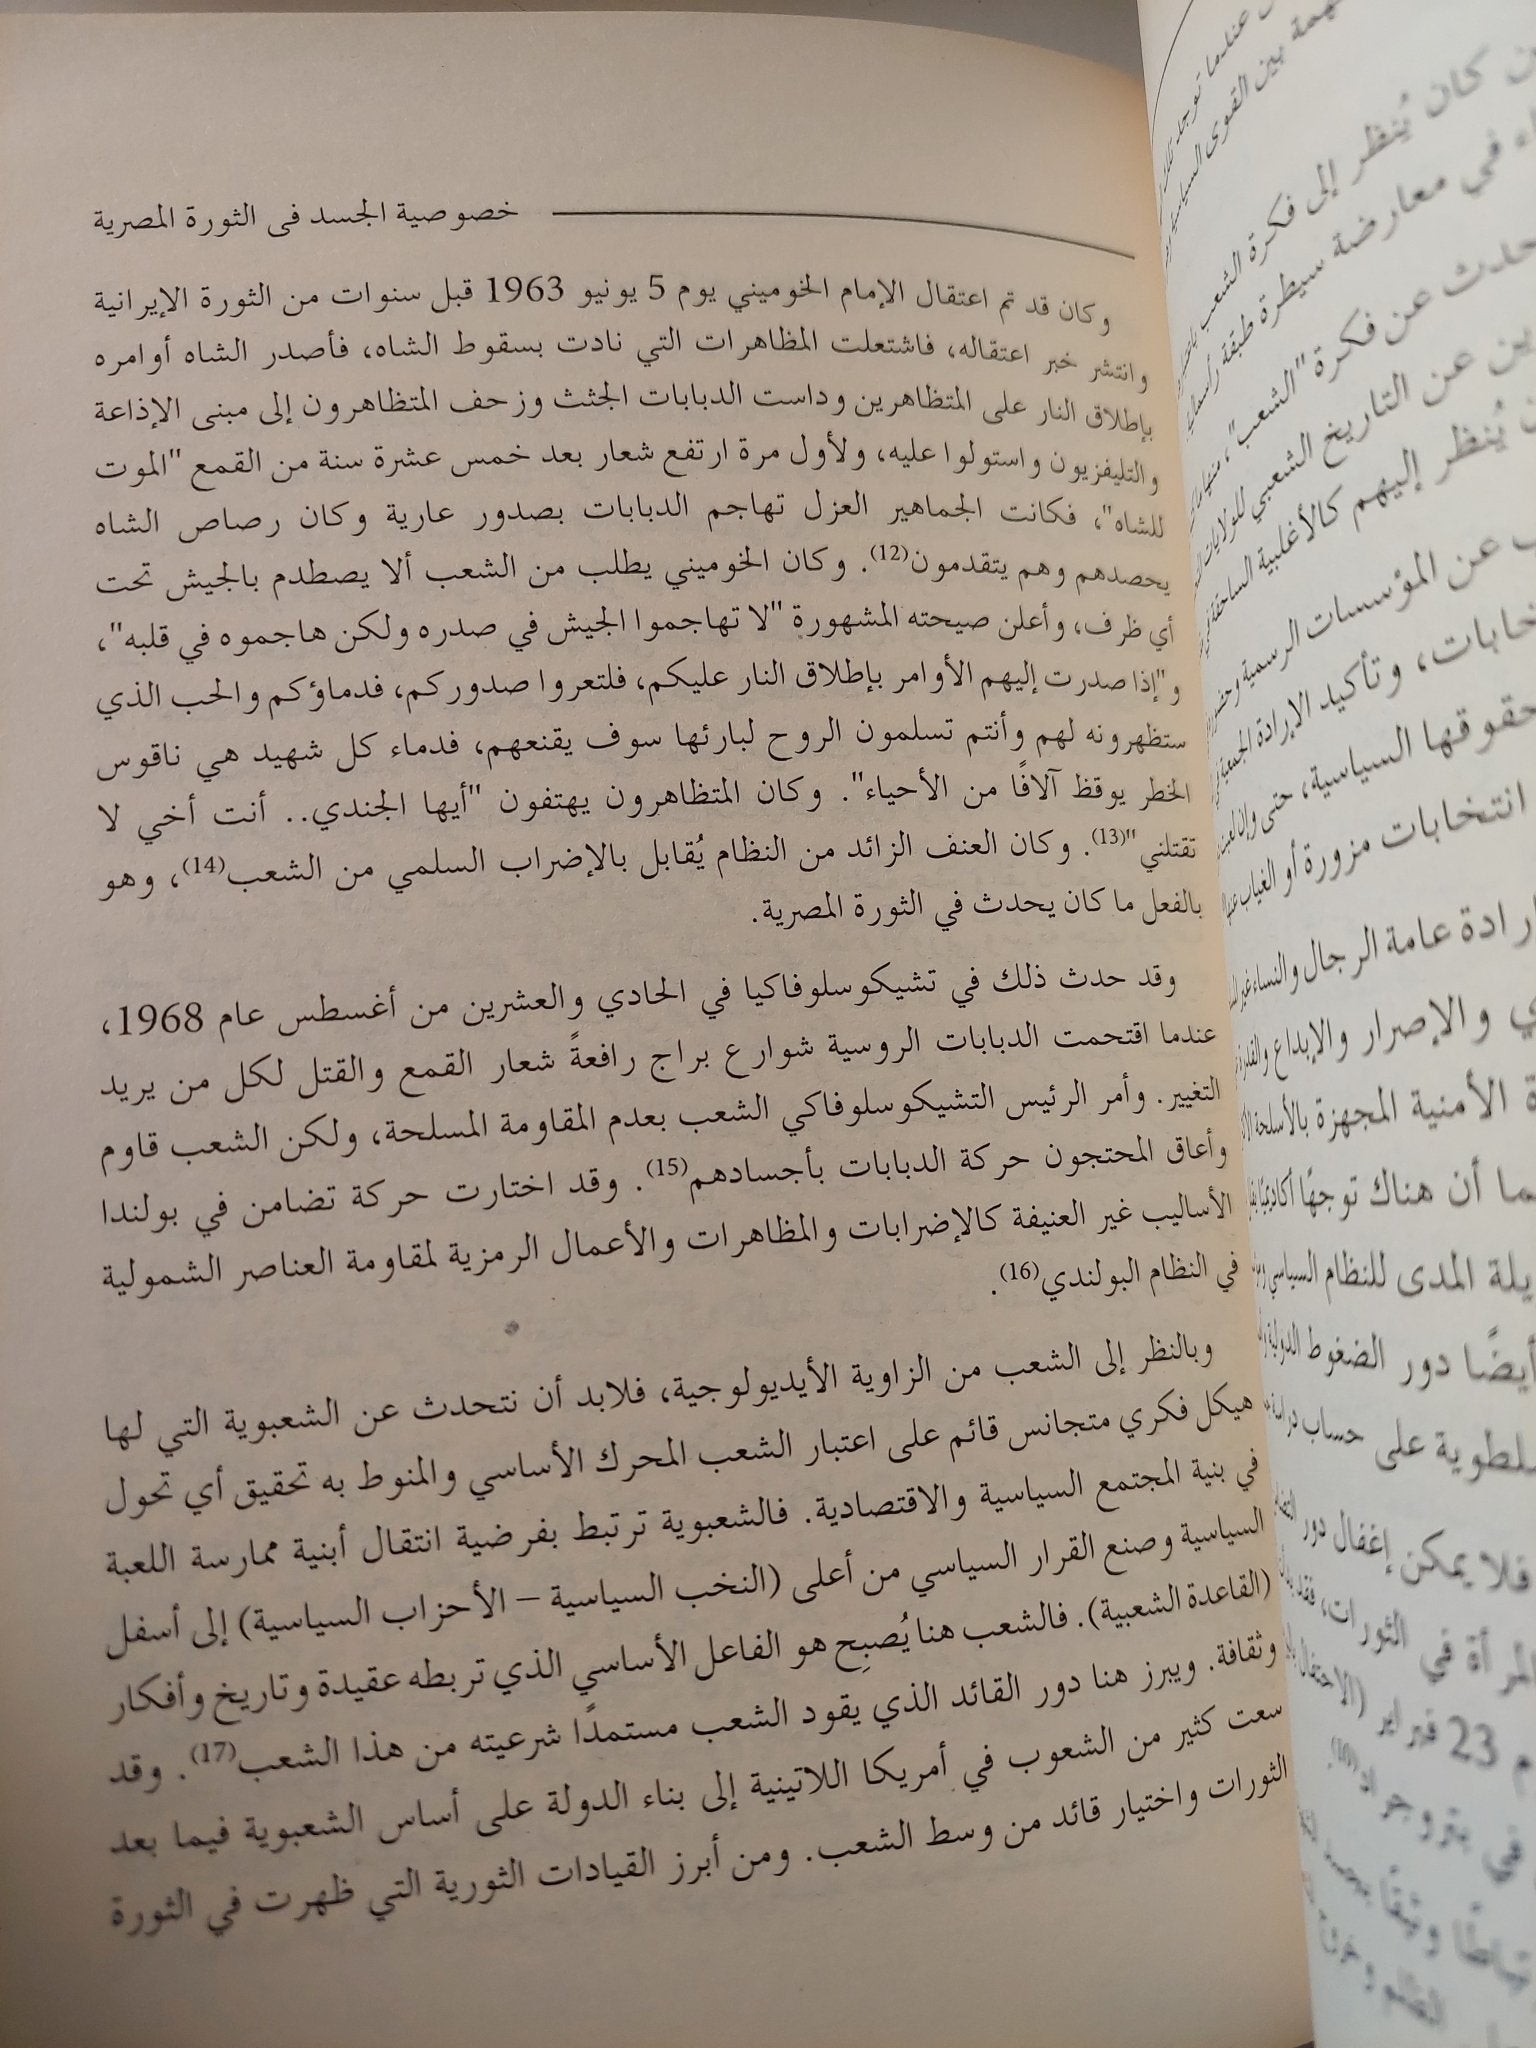 خصوصية الجسد فى الثورة المصرية
وكان قد تم اعتقال الإمام الخوميني يوم 5 يونيو 1963 قبل سنوات من الثورة الإيرانية
وانتشر خبر اعتقاله، فاشتعلت المظاهرات التي نادت بسقوط الشاه، فأصدر الشاه أوامره
بإطلاق النار على المتظاهرين وداست الدبابات الجثث وزحف المتظاهرون إلى مبنى الإذاعة
والتليفزيون واستولوا عليه، ولأول مرة ارتفع شعار بعد خمس عشرة سنة من القمع "الموت
للشاه"، فكانت الجماهير العزل تهاجم الدبابات بصدور عارية وكان رصاص الشاه
يحصدهم وهم يتقدمون(12). وكان الخوميني يطلب من الشعب ألا يصطدم بالجيش تحت
أي ظرف، وأعلن صيحته المشهورة "لا تهاجموا الجيش في صدره ولكن هاجموه في قلبه"،
و"إذا صدرت إليهم الأوامر بإطلاق النار عليكم، فلتعروا صدوركم، فدماؤكم والحب الذي
ستظهرونه لهم وأنتم تسلمون الروح لبارئها سوف يقنعهم، فدماء كل شهيد هي ناقوس
الخطر يوقظ آلافًا من الأحياء". وكان المتظاهرون يهتفون "أيها الجندي.. أنت أخي لا
تقتلني"(13). وكان العنف الزائد من النظام يُقابل بالإضراب السلمي من الشعب(14)، وهو
بالفعل ما كان يحدث في الثورة المصرية.
وقد حدث ذلك في تشيكوسلوفاكيا في الحادي والعشرين من أغسطس عام 1968،
عندما اقتحمت الدبابات الروسية شوارع براج رافعةً شعار القمع والقتل لكل من يريد
التغيير. وأمر الرئيس التشيكوسلوفاكي الشعب بعدم المقاومة المسلحة، ولكن الشعب قاوم
وأعاق المحتجون حركة الدبابات بأجسادهم(15). وقد اختارت حركة تضامن في بولندا
الأساليب غير العنيفة كالإضرابات والمظاهرات والأعمال الرمزية لمقاومة العناصر الشمولية
في النظام البولندي(16).
وبالنظر إلى الشعب من الزاوية الأيديولوجية، فلابد أن نتحدث عن الشعبوية التي لها
هيكل فكري متجانس قائم على اعتبار الشعب المحرك الأساسي والمنوط به تحقيق أي تحول
في بنية المجتمع السياسية والاقتصادية. فالشعبوية ترتبط بفرضية انتقال أبنية ممارسة اللعبة
السياسية وصنع القرار السياسي من أعلى (النخب السياسية – الأحزاب السياسية) إلى أسفل
(القاعدة الشعبية). فالشعب هنا يُصبِح هو الفاعل الأساسي الذي تربطه عقيدة وتاريخ وأفكار
وثقافة. ويبرز هنا دور القائد الذي يقود الشعب مستمدًا شرعيته من هذا الشعب(17). وقد
سعت كثير من الشعوب في أمريكا اللاتينية إلى بناء الدولة على أساس الشعبوية فيما بعد
الثورات واختيار قائد من وسط الشعب. ومن أبرز القيادات الثورية التي ظهرت في الثورة
عندما توجد
بين القوى السياسية
كان يُنظر إلى فكرة الشعب
في معارضة سيطرة طبقة
عن فكرة "الشعب"،
عن التاريخ الشعبي للولايات
يُنظر إليهم كالأغلبية الساحقة
عن المؤسسات الرسمية
وتأكيد الإرادة الجمعية
حقوقها السياسية، حتى وإن
انتخابات مزورة أو الغياب
إرادة عامة الرجال والنساء غير
والإصرار والإبداع
الأمنية المجهزة بالأسلحة
أن هناك توجهًا أكاديميًا
المدى للنظام السياسي
أيضًا دور الضغوط الدولية
على حساب
فلا يمكن إغفال دور
المرأة في الثورات، فقد
23 فبراير (الاحتفال
في بتروجراد(10).